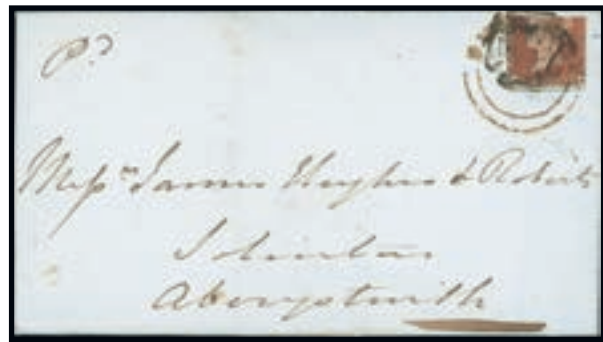 Pd
Messrs James Hughes & Roberts
Solicitors
Aberystwith